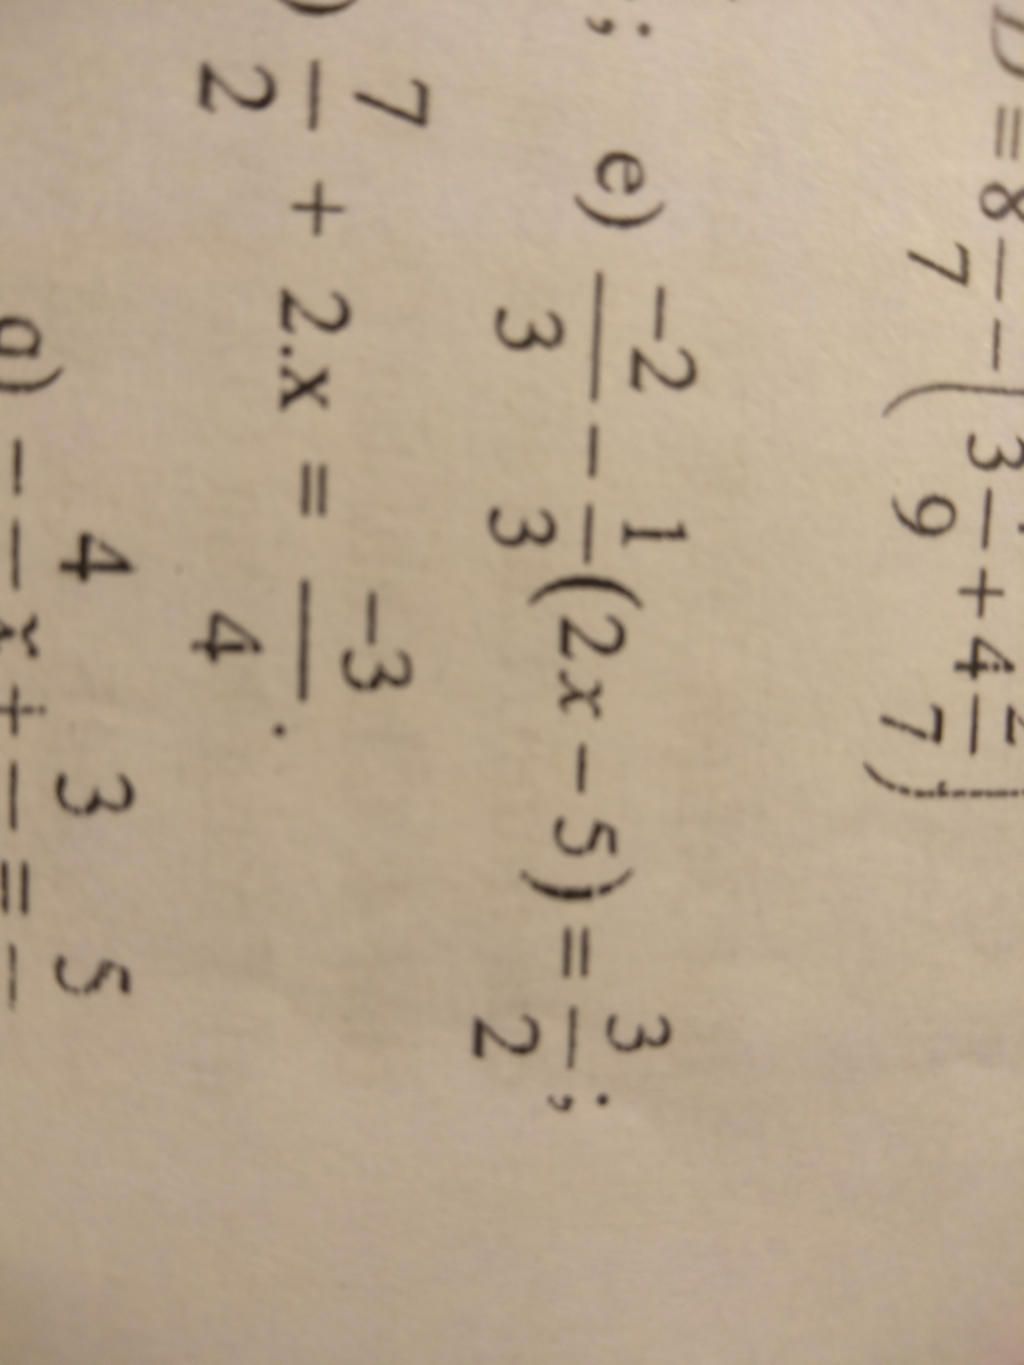 D = 8 /7 - ( 3 /9 + 4 2/7 )
; e) -2/3 - 1/3 (2x - 5) = 3/2 ;
) 7/2 + 2.x = -3/4 .
g) - 4/ x + 3/ = 5/